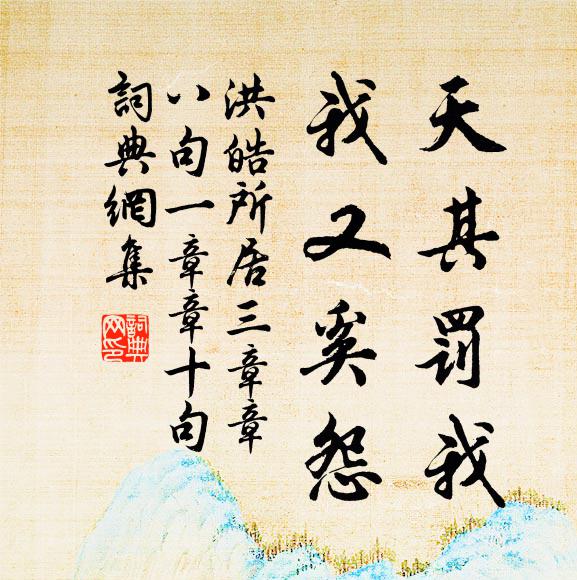 天其罰我
我又奚怨
洪皓所居三章章
八句一章章十句
詞典網集
詞典網印